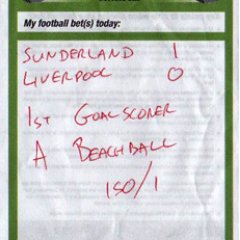 My football bet(s) today:
SUNDERLAND 1
LIVERPOOL 0
1ST GOALSCORER
A BEACHBALL
150/1